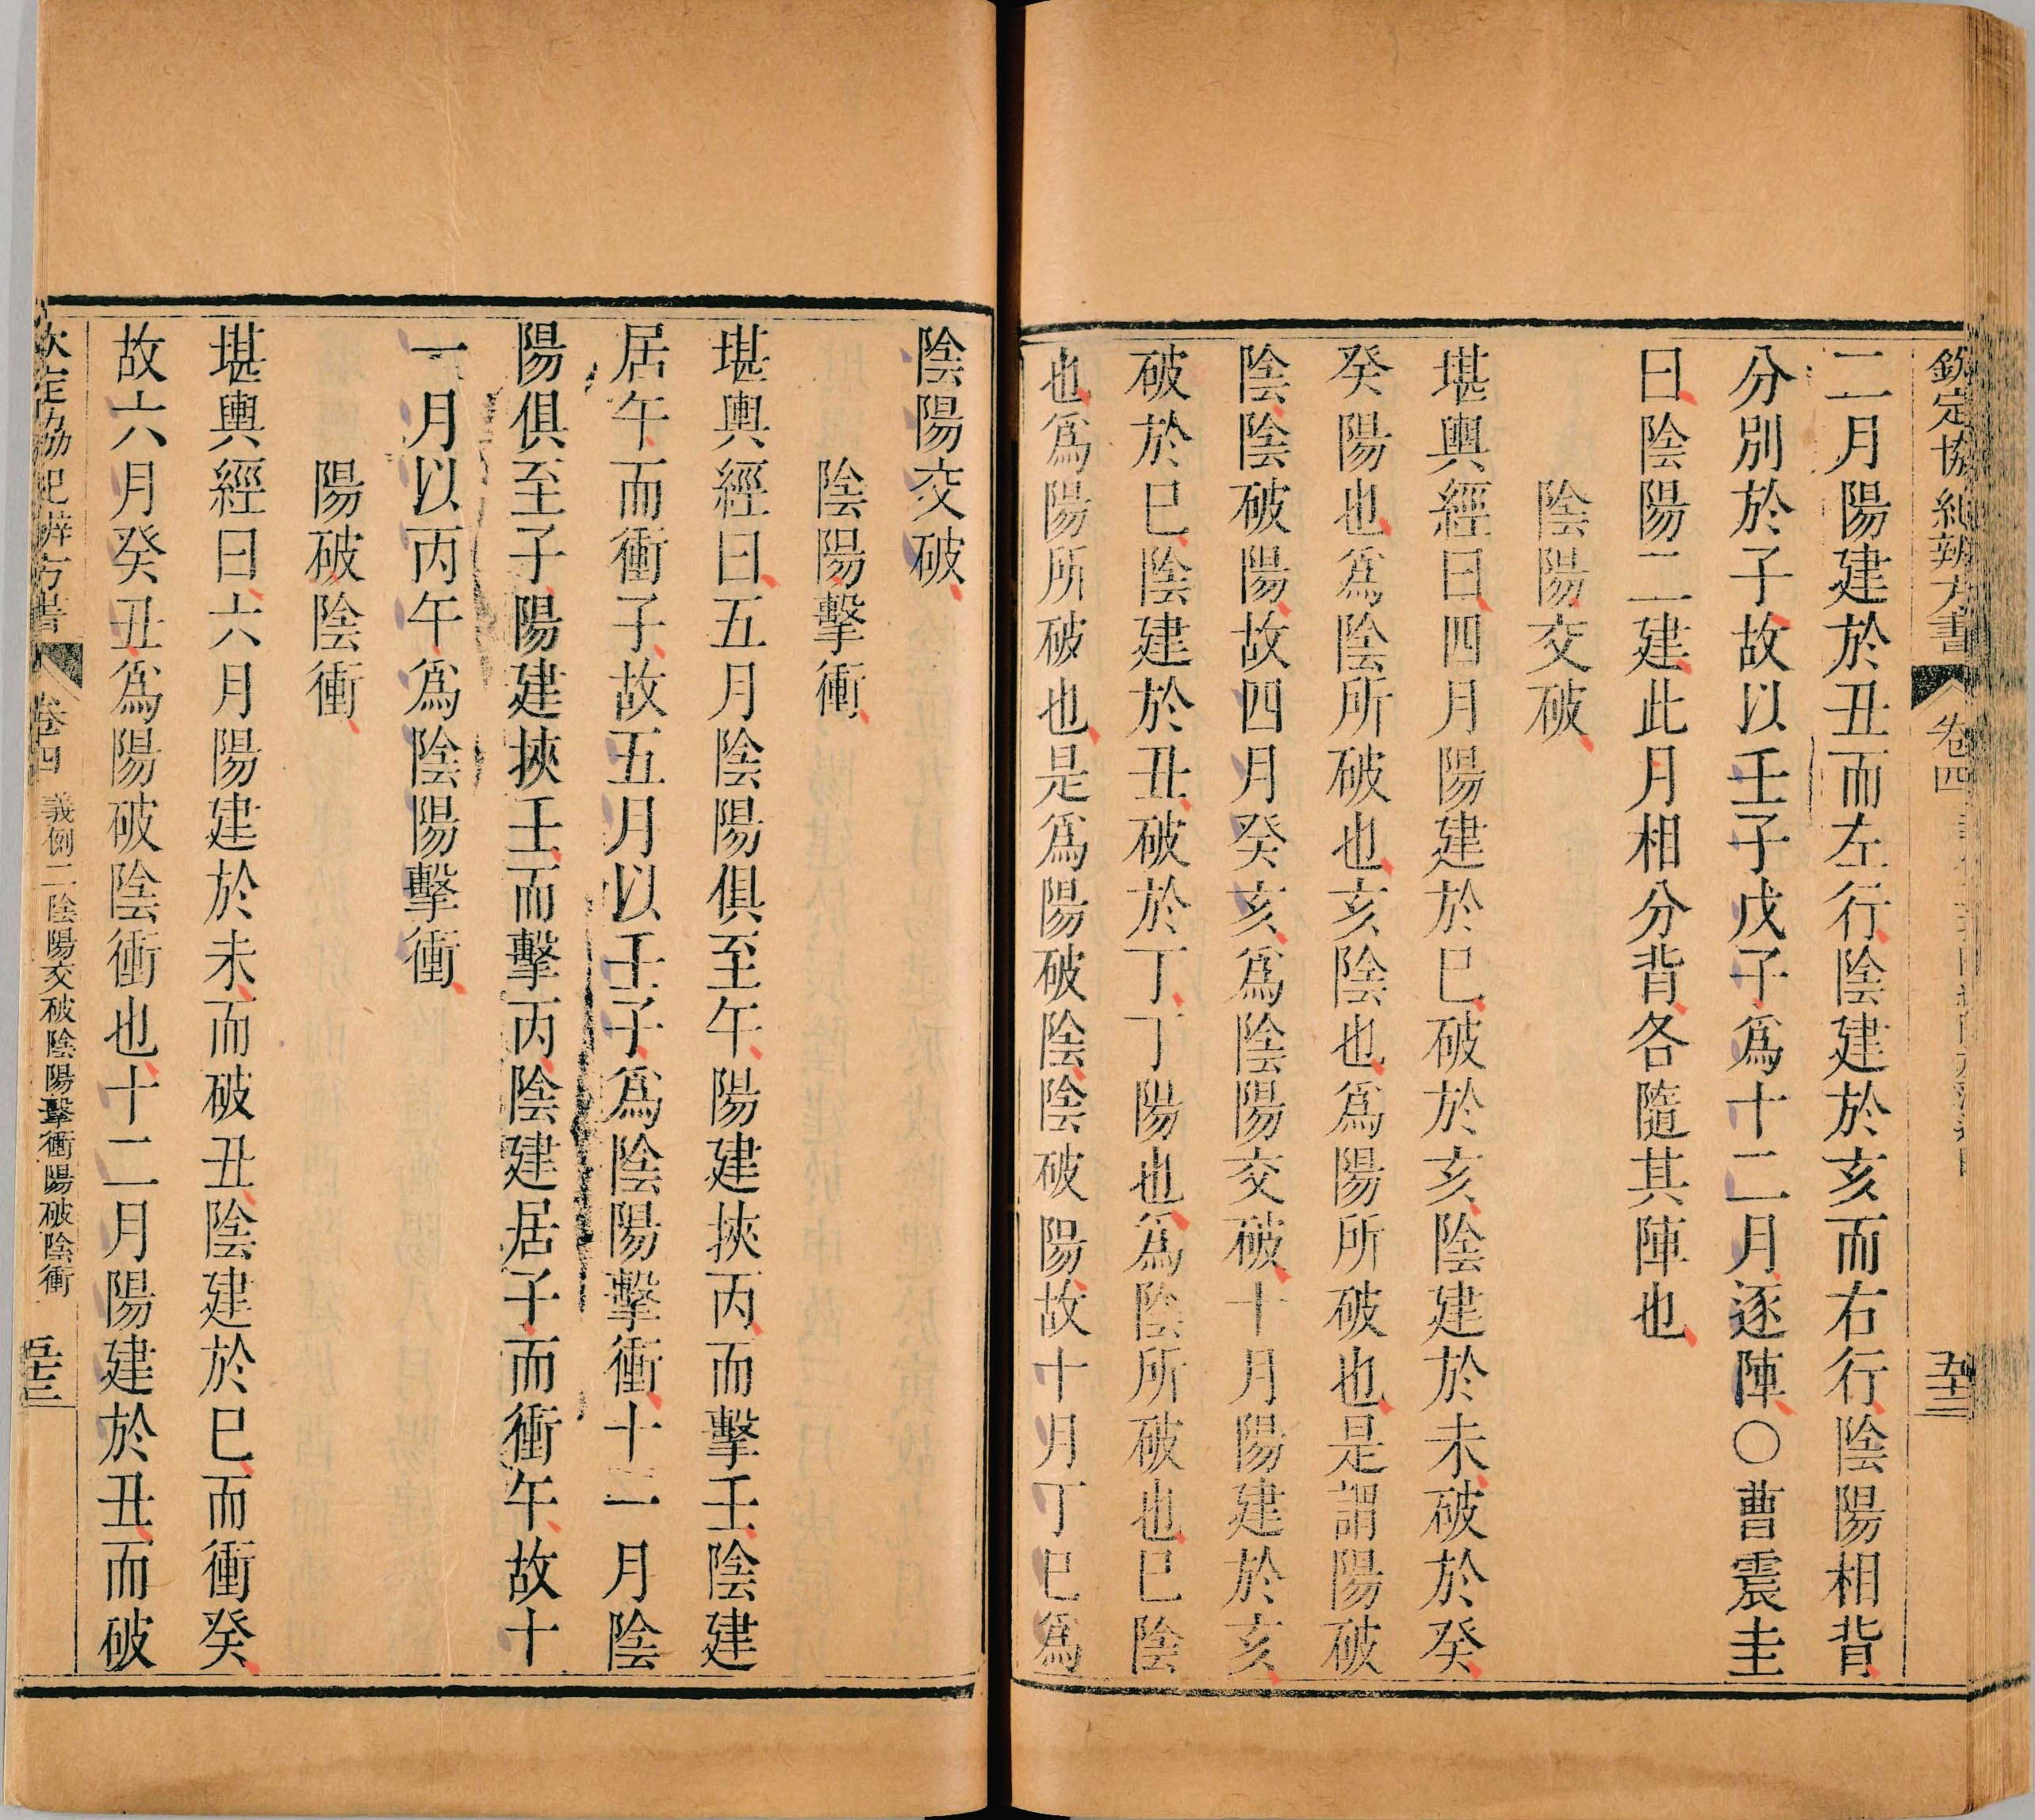 欽定協紀辨方書 卷四
二月陽建於丑而左行陰建於亥而右行陰陽相背
分別於子故以壬子戊子爲十二月逐陣○曹震圭
曰陰陽二建此月相分背各隨其陣也
陰陽交破
堪輿經曰四月陽建於巳破於亥陰建於未破於癸
癸陽也爲陰所破也亥陰也爲陽所破也是謂陽破
陰陰破陽故四月癸亥爲陰陽交破十月陽建於亥
破於巳陰建於丑破於丁丁陽也爲陰所破也巳陰
也爲陽所破也是爲陽破陰陰破陽故十月丁巳爲
陰陽交破
陰陽擊衝
堪輿經曰五月陰陽俱至午陽建挾丙而擊壬陰建
居午而衝子故五月以壬子爲陰陽擊衝十一月陰
陽俱至子陽建挾壬而擊丙陰建居子而衝午故十
一月以丙午爲陰陽擊衝
陽破陰衝
堪輿經曰六月陽建於未而破丑陰建於巳而衝癸
故六月癸丑爲陽破陰衝也十二月陽建於丑而破
欽定協紀辨方書 卷四 義例二陰陽交破陰陽擊衝陽破陰衝 五十三